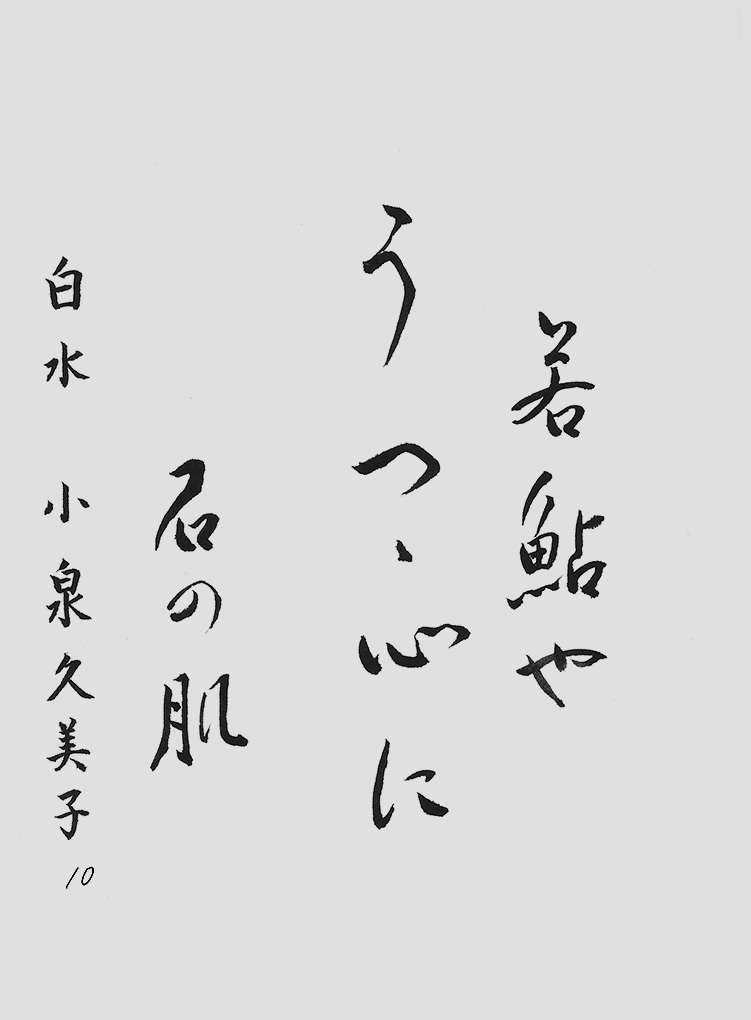 若鮎や
うつゝ心に
石の肌
白水 小泉久美子
10